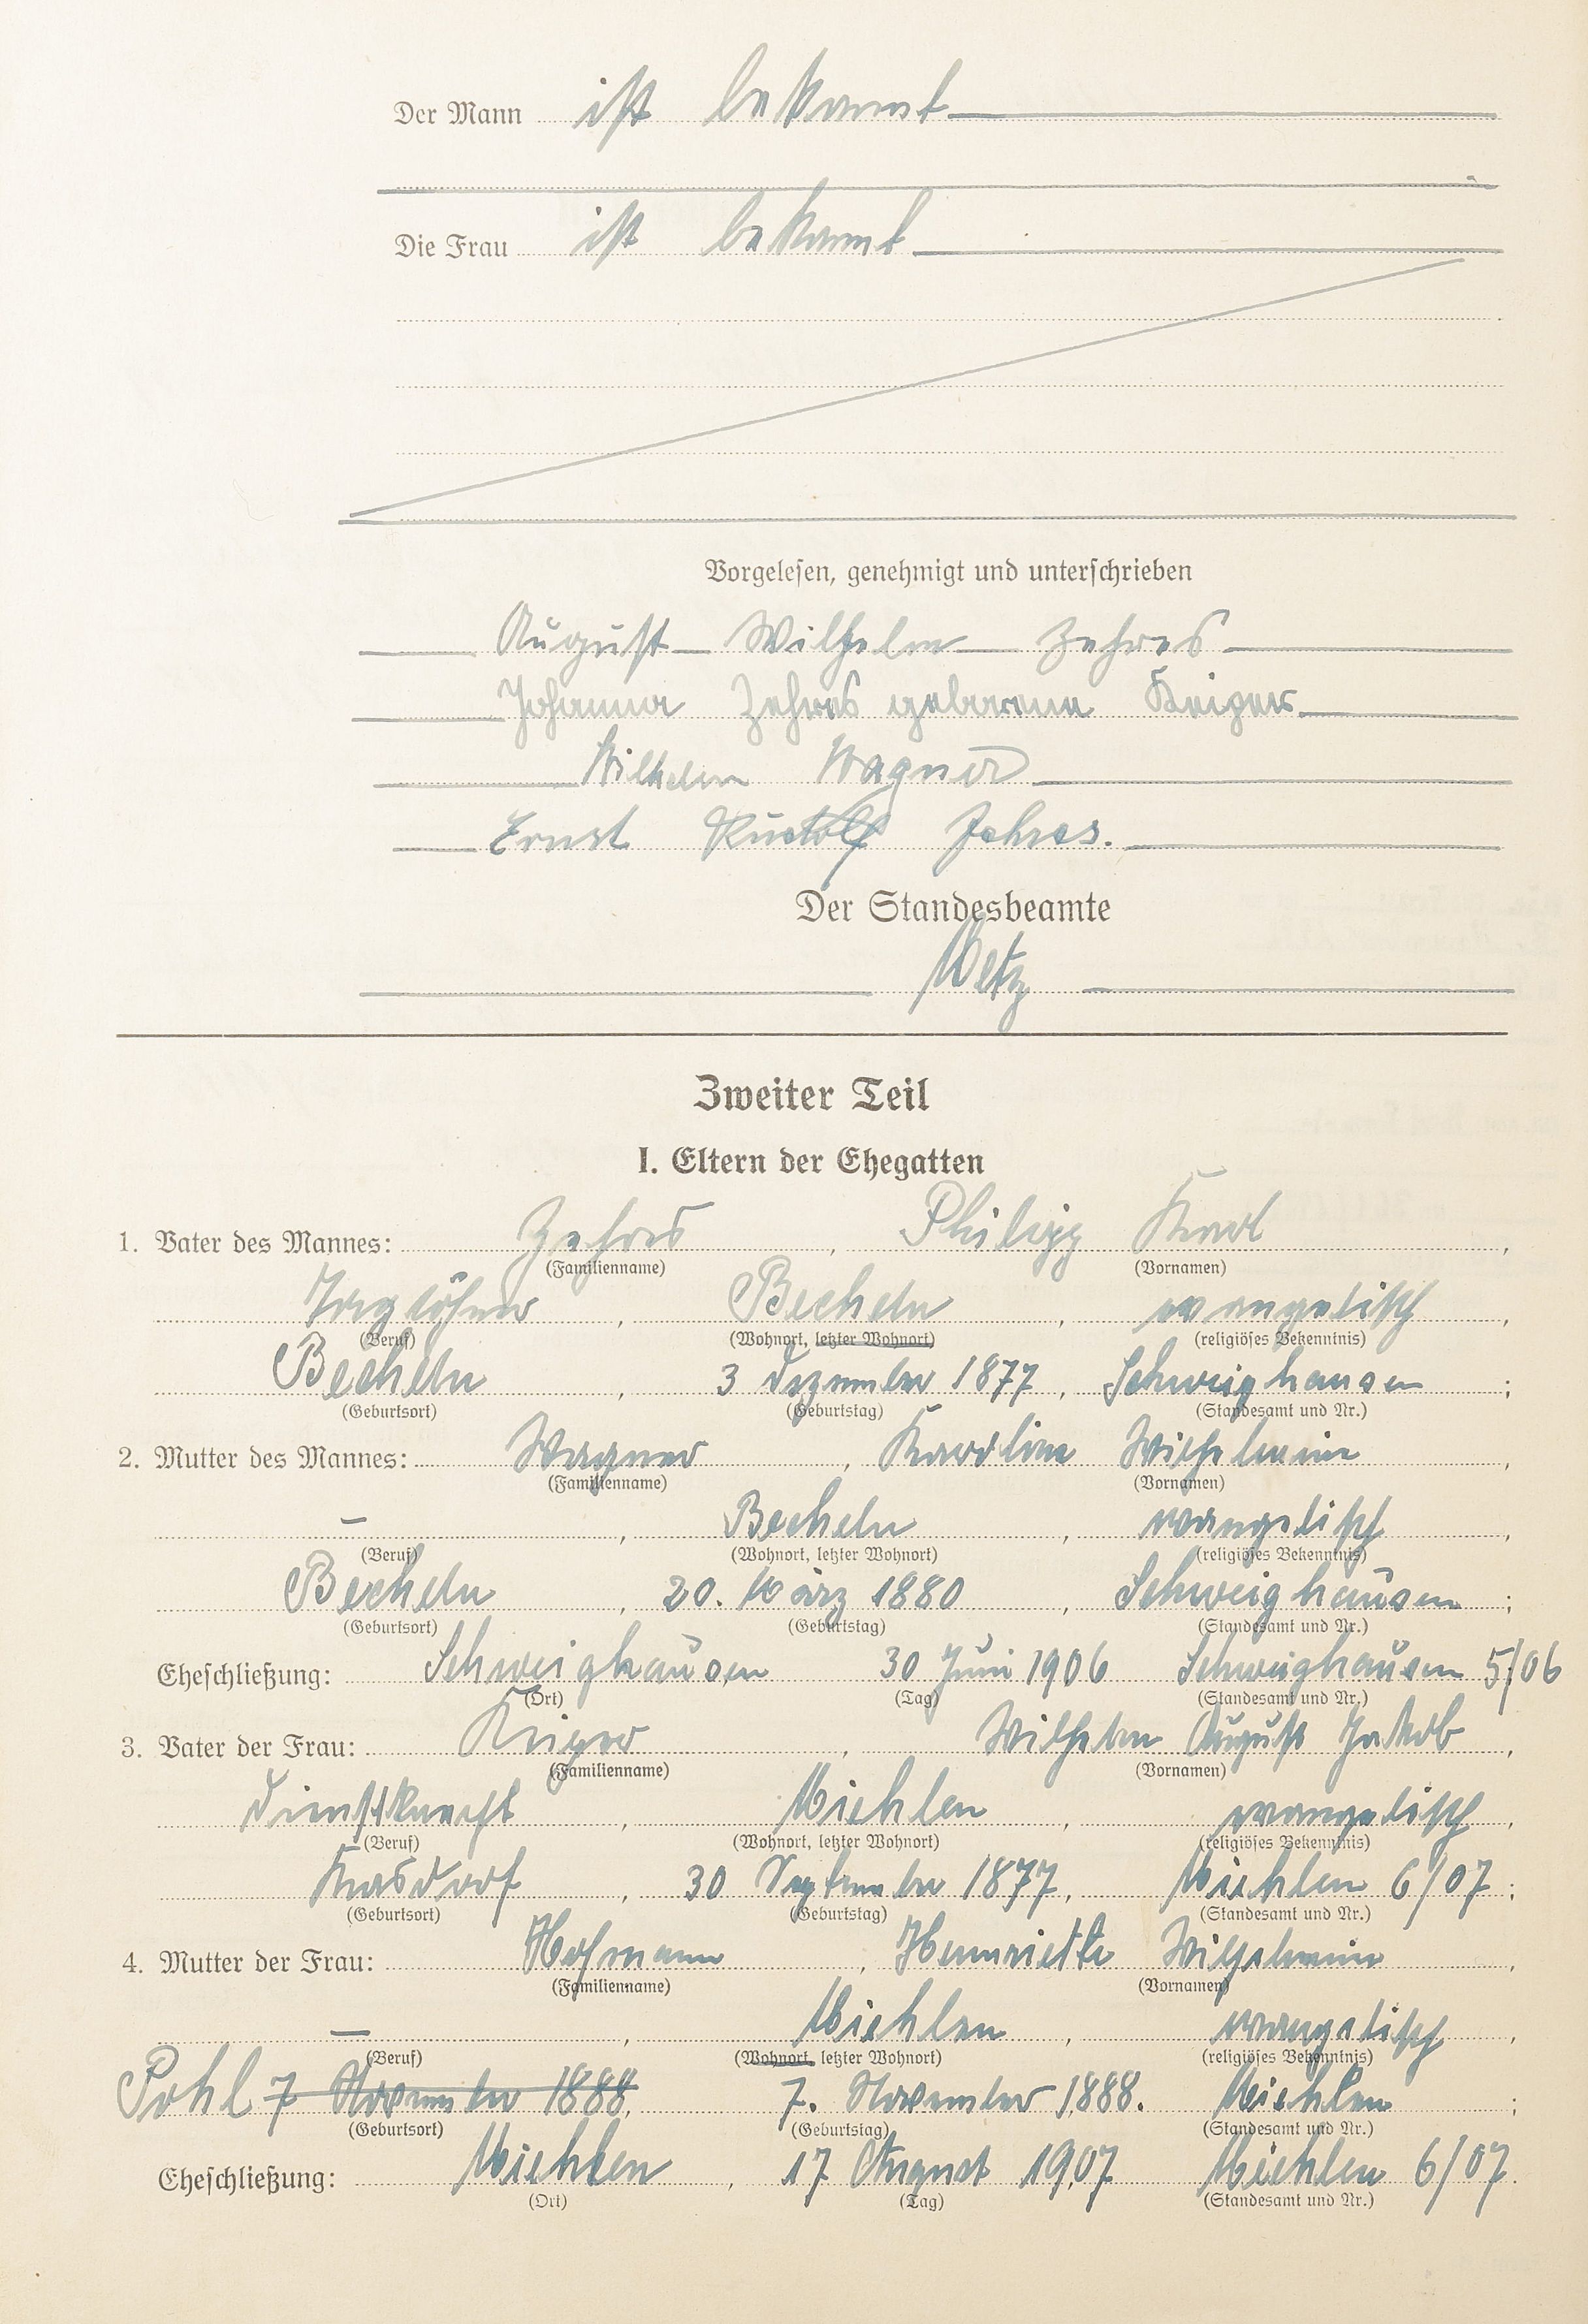 Der Mann ist bekannt
Die Frau ist bekannt
Vorgelesen, genehmigt und unterschrieben
August Wilhelm Zehres
Johanna Zehres geborene
Wilhelm Wagner
Ernst Rudolf Zehres.
Der Standesbeamte
Metz
Zweiter Teil
I. Eltern der Ehegatten
1. Vater des Mannes: Zehres, Philipp Karl,
(Familienname) (Vornamen)
Taglöhner, Becheln, evangelisch,
(Beruf) (Wohnort, letzter Wohnort) (religiöses Bekenntnis)
Becheln, 3 Dezember 1877, Schweighausen;
(Geburtsort) (Geburtstag) (Standesamt und Nr.)
2. Mutter des Mannes: Wagner, Karoline Wilhelmine,
(Familienname) (Vornamen)
–, Becheln, evangelisch,
(Beruf) (Wohnort, letzter Wohnort) (religiöses Bekenntnis)
Becheln, 20. März 1880, Schweighausen;
(Geburtsort) (Geburtstag) (Standesamt und Nr.)
Eheschließung: Schweighausen 30 Juni 1906 Schweighausen 5/06
(Ort) (Tag) (Standesamt und Nr.)
3. Vater der Frau:, Wilhelm August Jakob,
(Familienname) (Vornamen)
Dienstknecht, Miehlen, evangelisch,
(Beruf) (Wohnort, letzter Wohnort) (religiöses Bekenntnis)
Kasdorf, 30 September 1877, Miehlen 6/07;
(Geburtsort) (Geburtstag) (Standesamt und Nr.)
4. Mutter der Frau: Hofmann, Henriette Wilhelmine,
(Familienname) (Vornamen)
–, Miehlen, evangelisch,
(Beruf) (Wohnort, letzter Wohnort) (religiöses Bekenntnis)
Pohl 7 November 1888, 7. November 1888. Miehlen;
(Geburtsort) (Geburtstag) (Standesamt und Nr.)
Eheschließung: Miehlen, 17 August 1907 Miehlen 6/07.
(Ort) (Tag) (Standesamt und Nr.)